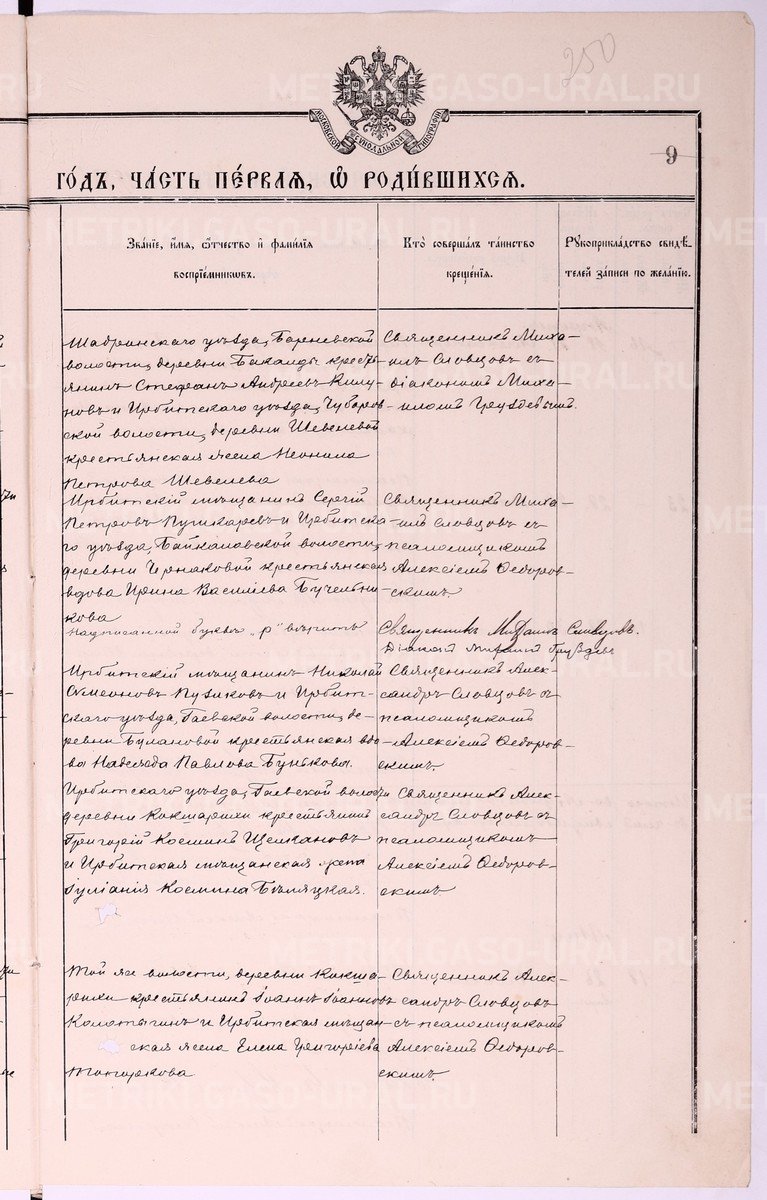 250
МОСКОВСКОЙ СѴНОДАЛЬНОЙ ТИПОГРАФІИ
9
го́дъ, ча́сть пе́рваѧ, ѡ҆ роди́вшихсѧ.
Зва́нїе, и҆́мѧ, ѻ҆́тчество и҆ фами́лїѧ
воспрїе́мниковъ.
Кто̀ соверша́лъ та́инство
креще́нїѧ.
Рꙋкоприкла́дство свидѣ́-
телей за́писи по жела́нїю.
Шадринскаго уѣзда, Барневской
волости, деревни Бакалды кресть-
янинъ Стефанъ Андреевъ
новъ и Ирбитскаго уѣзда, Чубаров-
ской волости, деревни Шевелевой
крестьянская жена Неонила
Петрова Шевелева
Священникъ Миха-
илъ Словцовъ съ
діакономъ Миха-
иломъ Груздевымъ.
Ирбитскій мѣщанинъ Сергій
Петровъ Пушкаревъ и Ирбитска-
го уѣзда, Байкаловской волости,
деревни Чернаковой крестьянская
вдова Ирина Василіева Бучельни-
кова
Священникъ Миха-
илъ Словцовъ съ
псаломщикомъ
Алексіемъ Ѳедоров-
скимъ.
Надписанной букве „р" вѣрить
Священникъ Михаилъ Словцовъ.
Діаконъ Михаилъ Груздевъ
Ирбитскій мѣщанинъ Николай
Сѵмеоновъ Пузиковъ и Ирбит-
скаго уѣзда, Гаевской волости, де-
ревни Булановой крестьянская вдо-
ва Надежда Павлова Бунькова.
Священникъ Алек-
сандръ Словцовъ съ
псаломщикомъ
Алексіемъ Ѳедоров-
скимъ
Ирбитскаго уѣзда, Гаевской волости
деревни Кокшарихи крестьянинъ
Григорій Косминъ Щелкановъ
и Ирбитская мѣщанская жена
Іуліанія Космина Бѣляцкая.
Священникъ Алек-
сандръ Словцовъ съ
псаломщикомъ
Алексіемъ Ѳедоров-
скимъ
Той же волости, деревни Кокша-
рихи крестьянинъ Іоаннъ Іоанновъ
Колотыгинъ и Ирбитская мѣщан-
ская жена Елена Григоріева
Священникъ Алек-
сандръ Словцовъ
съ псаломщикомъ
Алексіемъ Ѳедоров-
скимъ.
METRIKI.GASO-URAL.RU